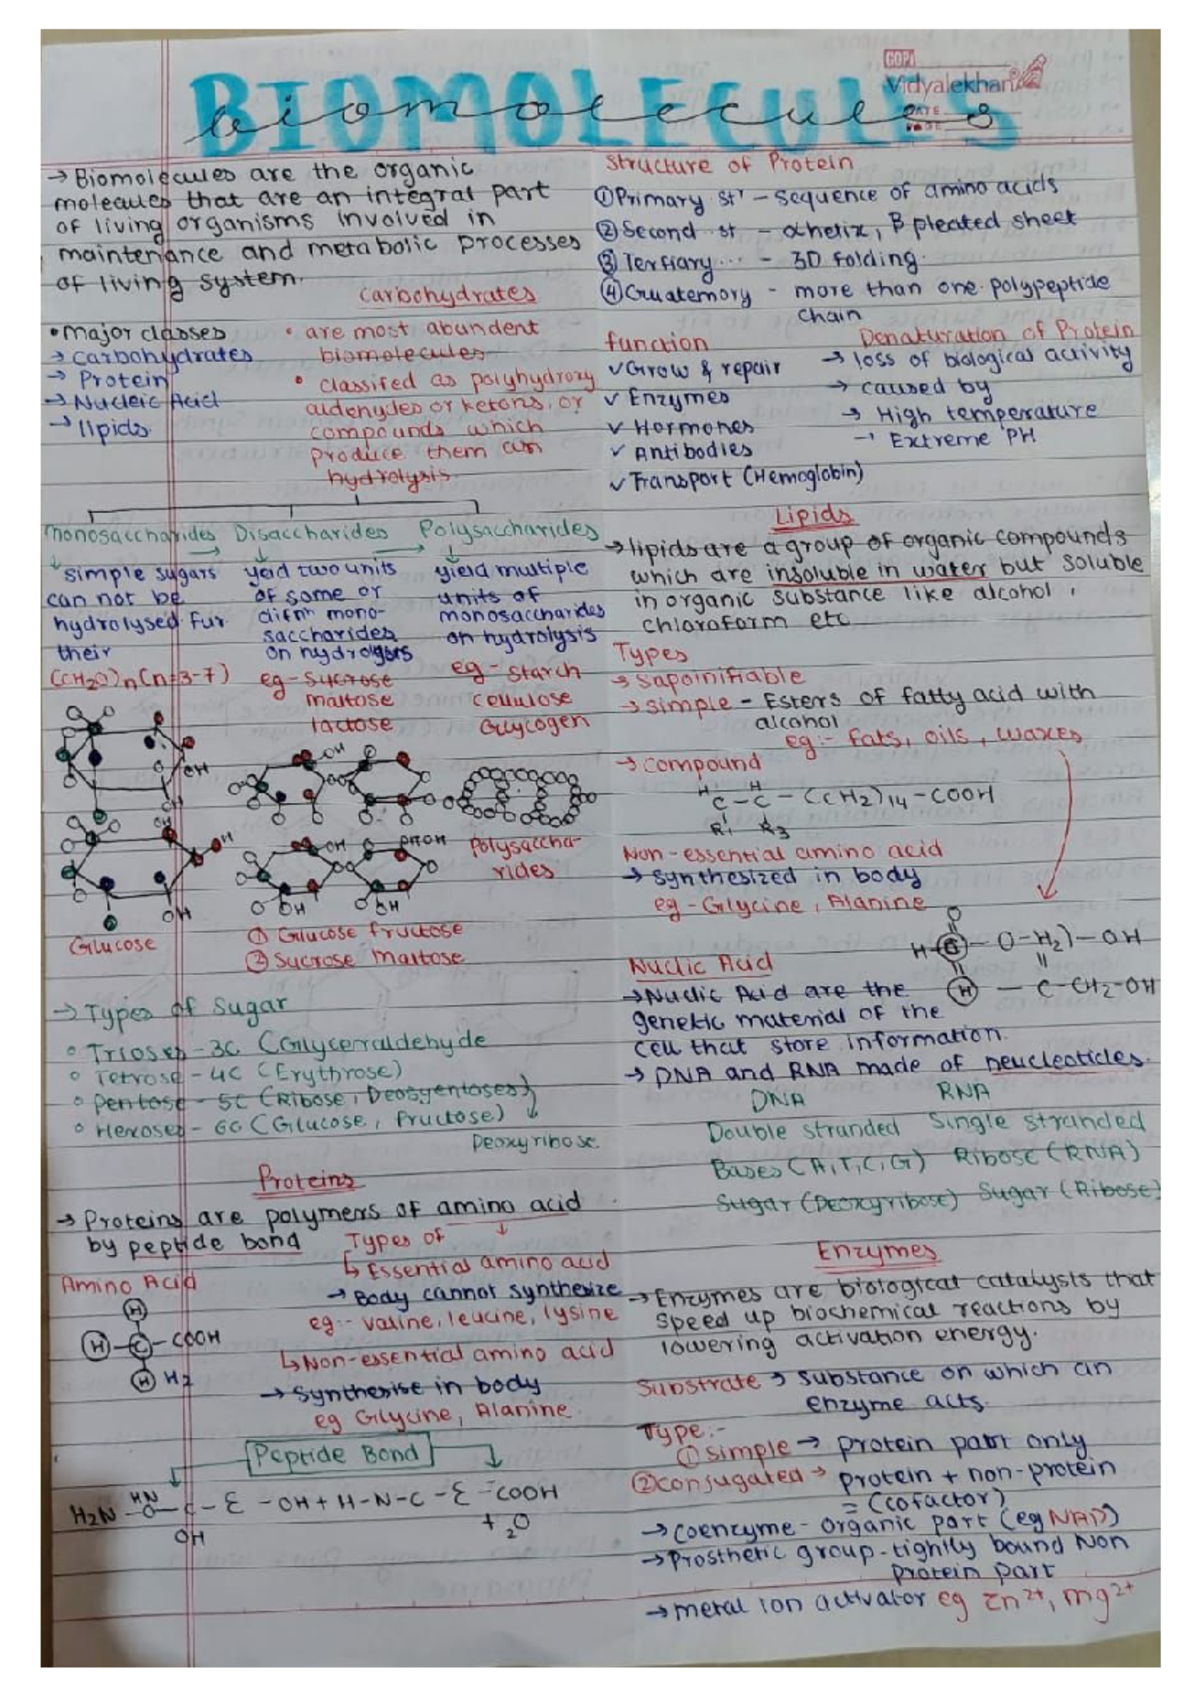 BIOMOLECULES
biomolecules
GOPI
Vidyalekhan
DATE
PAGE
→ Biomolecules are the organic
molecules that are an integral part
of living organisms involved in
maintenance and metabolic processes
of living system.
• major classes
→ Carbohydrates
→ Protein
→ Nucleic Acid
→ lipids
Carbohydrates
• are most abundent
biomolecules
• classifed as polyhydroxy
aldenydes or ketons, or
compounds which
produce them can
hydrolysis
Monosaccharides
↓ simple sugars
can not be
hydrolysed fur
their
(CH2O)n(n=3-7)
Disaccharides
yeid two units
of some or
difnt mono-
saccharides
on hydrolysis
eg- sucrose
maltose
lactose
Polysaccharides
yield multiple
units of
monosaccharides
on hydrolysis
eg- starch
cellulose
Glycogen
OH
OH
OH
OH
OH
OH
OH
OH
Glucose
① Glucose fructose
② Sucrose maltose
Polysaccha-
rides
→ Types of Sugar
° Trioses - 3C (Glyceraldehyde
° Tetrose - 4C (Erythrose)
° pentose - 5C (Ribose, Deoxyentoses)
° Hexoses - 6C (Glucose, fructose)
Deoxyribose
Proteins
→ Proteins are polymers of amino acid
by peptide bond
Amino Acid
H
H - C - COOH
H H2
Types of
↳ Essential amino acid
→ Body cannot synthesize
eg:- valine, leucine, lysine
↳ Non-essential amino acid
→ Synthesise in body
eg Glycine, Alanine.
Peptide Bond
HN
H2N - O - C - Ɛ - OH + H - N - C - Ɛ - COOH
OH
+ 2O
Structure of Protein
① Primary st' - Sequence of amino acids
② Second st - αhelix, β pleated sheet
③ Tertiary... - 3D folding.
④ Quatemory - more than one polypeptide
chain
function
✓ Grow & repair
✓ Enzymes
✓ Hormones
✓ Antibodies
✓ Transport (Hemoglobin)
Denaturation of Protein
→ loss of biological activity
→ caused by
→ High temperature
→ Extreme PH
Lipids
→ lipids are a group of organic compounds
which are insoluble in water but soluble
in organic substance like alcohol,
chloraform etc
Types
→ sapoinifiable
→ simple - Esters of fatty acid with
alcohol
eg:- fats, oils, waxes
→ compound
H H
C - C - (CH2)14 - COOH
R1 R3
Non-essential amino acid
→ synthesized in body
eg - Glycine, Alanine
H - C - O-H2) - OH
H - C - CH2-OH
Nuclic Acid
→ Nuclic Acid are the
genetic material of the
cell that store information.
→ DNA and RNA made of neucleoticles.
DNA RNA
Double stranded Single stranded
Bases (A,T,C,G) Ribose (RNA)
Sugar (Deoxyribose) Sugar (Ribose)
Enzymes
→ Enzymes are biological catalysts that
speed up biochemical reactions by
lowering activation energy.
Substrate → substance on which an
enzyme acts.
Type:-
① simple → protein part only
② conjugated → protein + non-protein
= (cofactor)
→ coenzyme - organic part (eg NAD)
→ Prosthetic group - tightly bound Non
protein part
→ metal ion activator eg Zn2+, mg2+